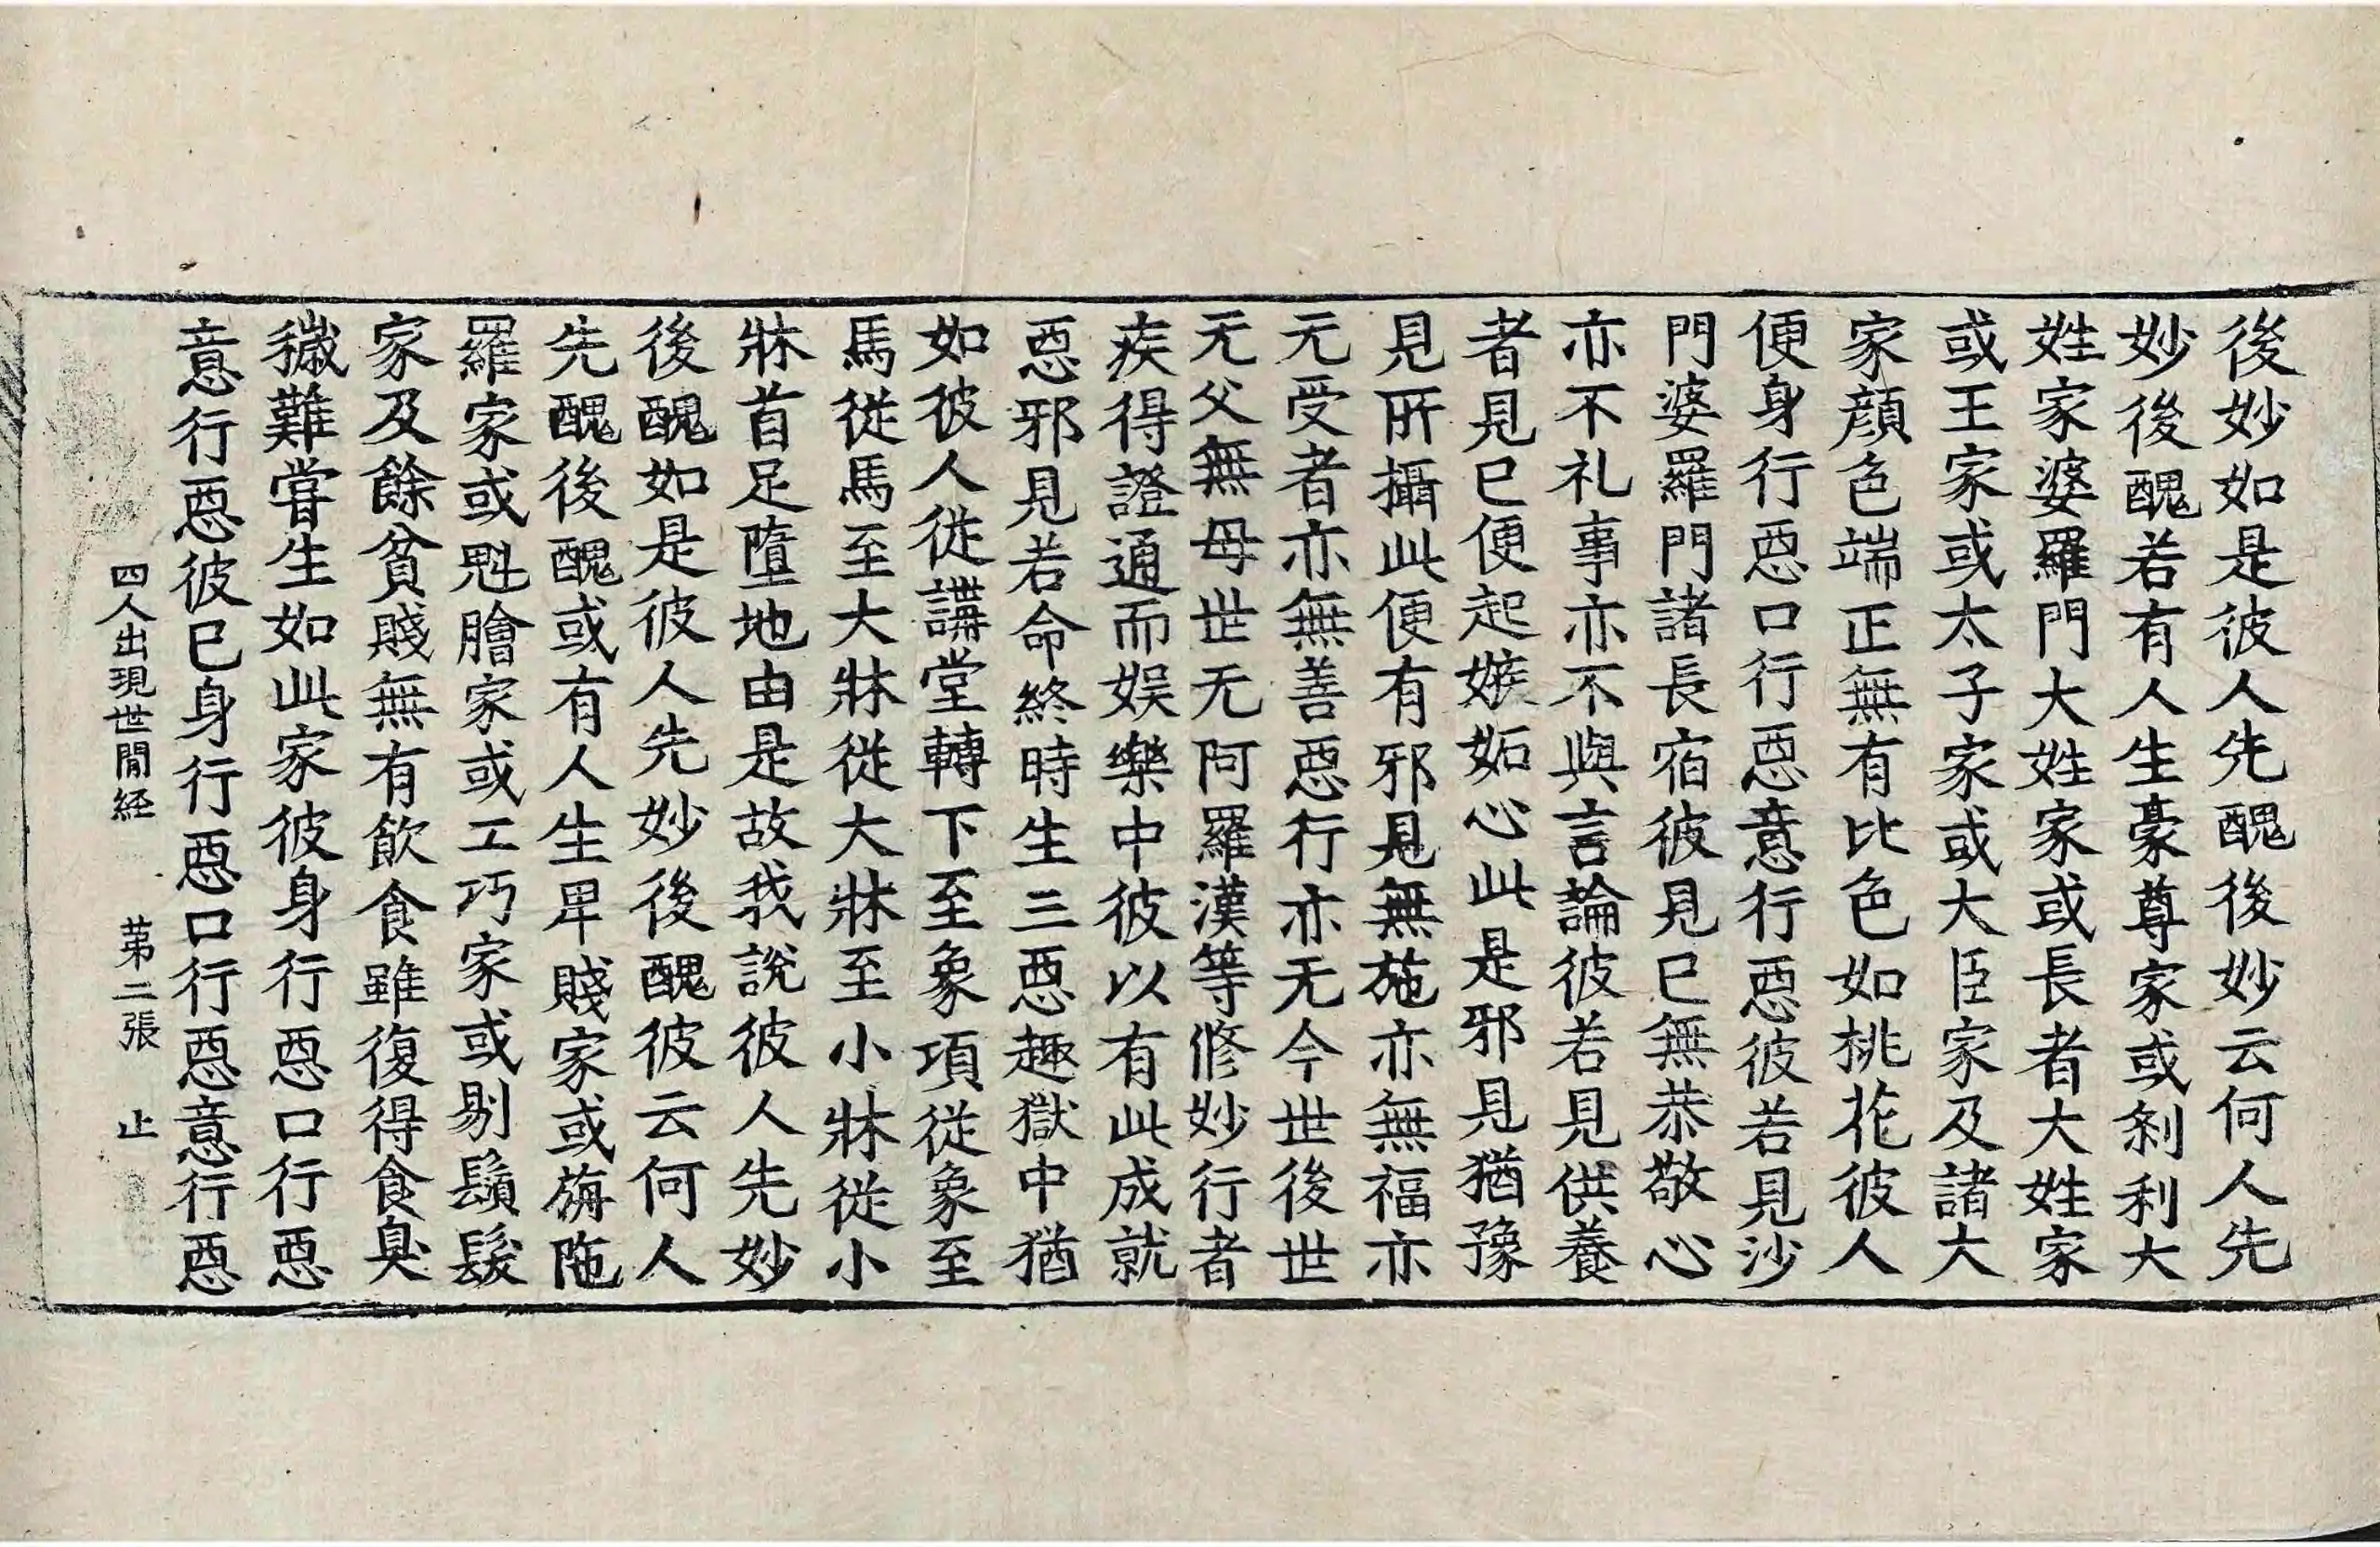 後妙如是彼人先醜後妙云何人先
妙後醜若有人生豪尊家或刹利大
姓家婆羅門大姓家或長者大姓家
或王家或太子家或大臣家及諸大
家顔色端正無有比色如桃花彼人
便身行惡口行惡意行惡彼若見沙
門婆羅門諸長宿彼見已無恭敬心
亦不礼事亦不與言論彼若見供養
者見已便起嫉妬心此是邪見猶豫
見所攝此便有邪見無施亦無福亦
无受者亦無善惡行亦无今世後世
无父無母世无阿羅漢等修妙行者
疾得證通而娛樂中彼以有此成就
惡邪見若命終時生三惡趣獄中猶
如彼人從講堂轉下至象項從象至
馬從馬至大牀從大牀至小牀從小
牀首足墮地由是故我說彼人先妙
後醜如是彼人先妙後醜彼云何人
先醜後醜或有人生卑賤家或旃陁
羅家或魁膾家或工巧家或剔鬚髮
家及餘貧賤無有飲食雖復得食臭
穢難嘗生如此家彼身行惡口行惡
意行惡彼已身行惡口行惡意行惡
四人出現世間経 苐二張 止